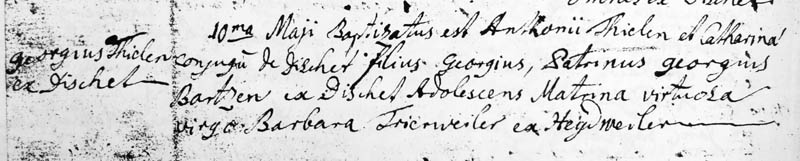 georgius Thielen
ex Dischet
10ma Maji Baptizatus est Anthonii Thielen et Catharina
conjugū de Dischet filius Georgius, Patrinus georgius
Bartzen ex Dischet Adolescens Matrina virtuosa
virgo Barbara Trierweiler ex Heydweiler